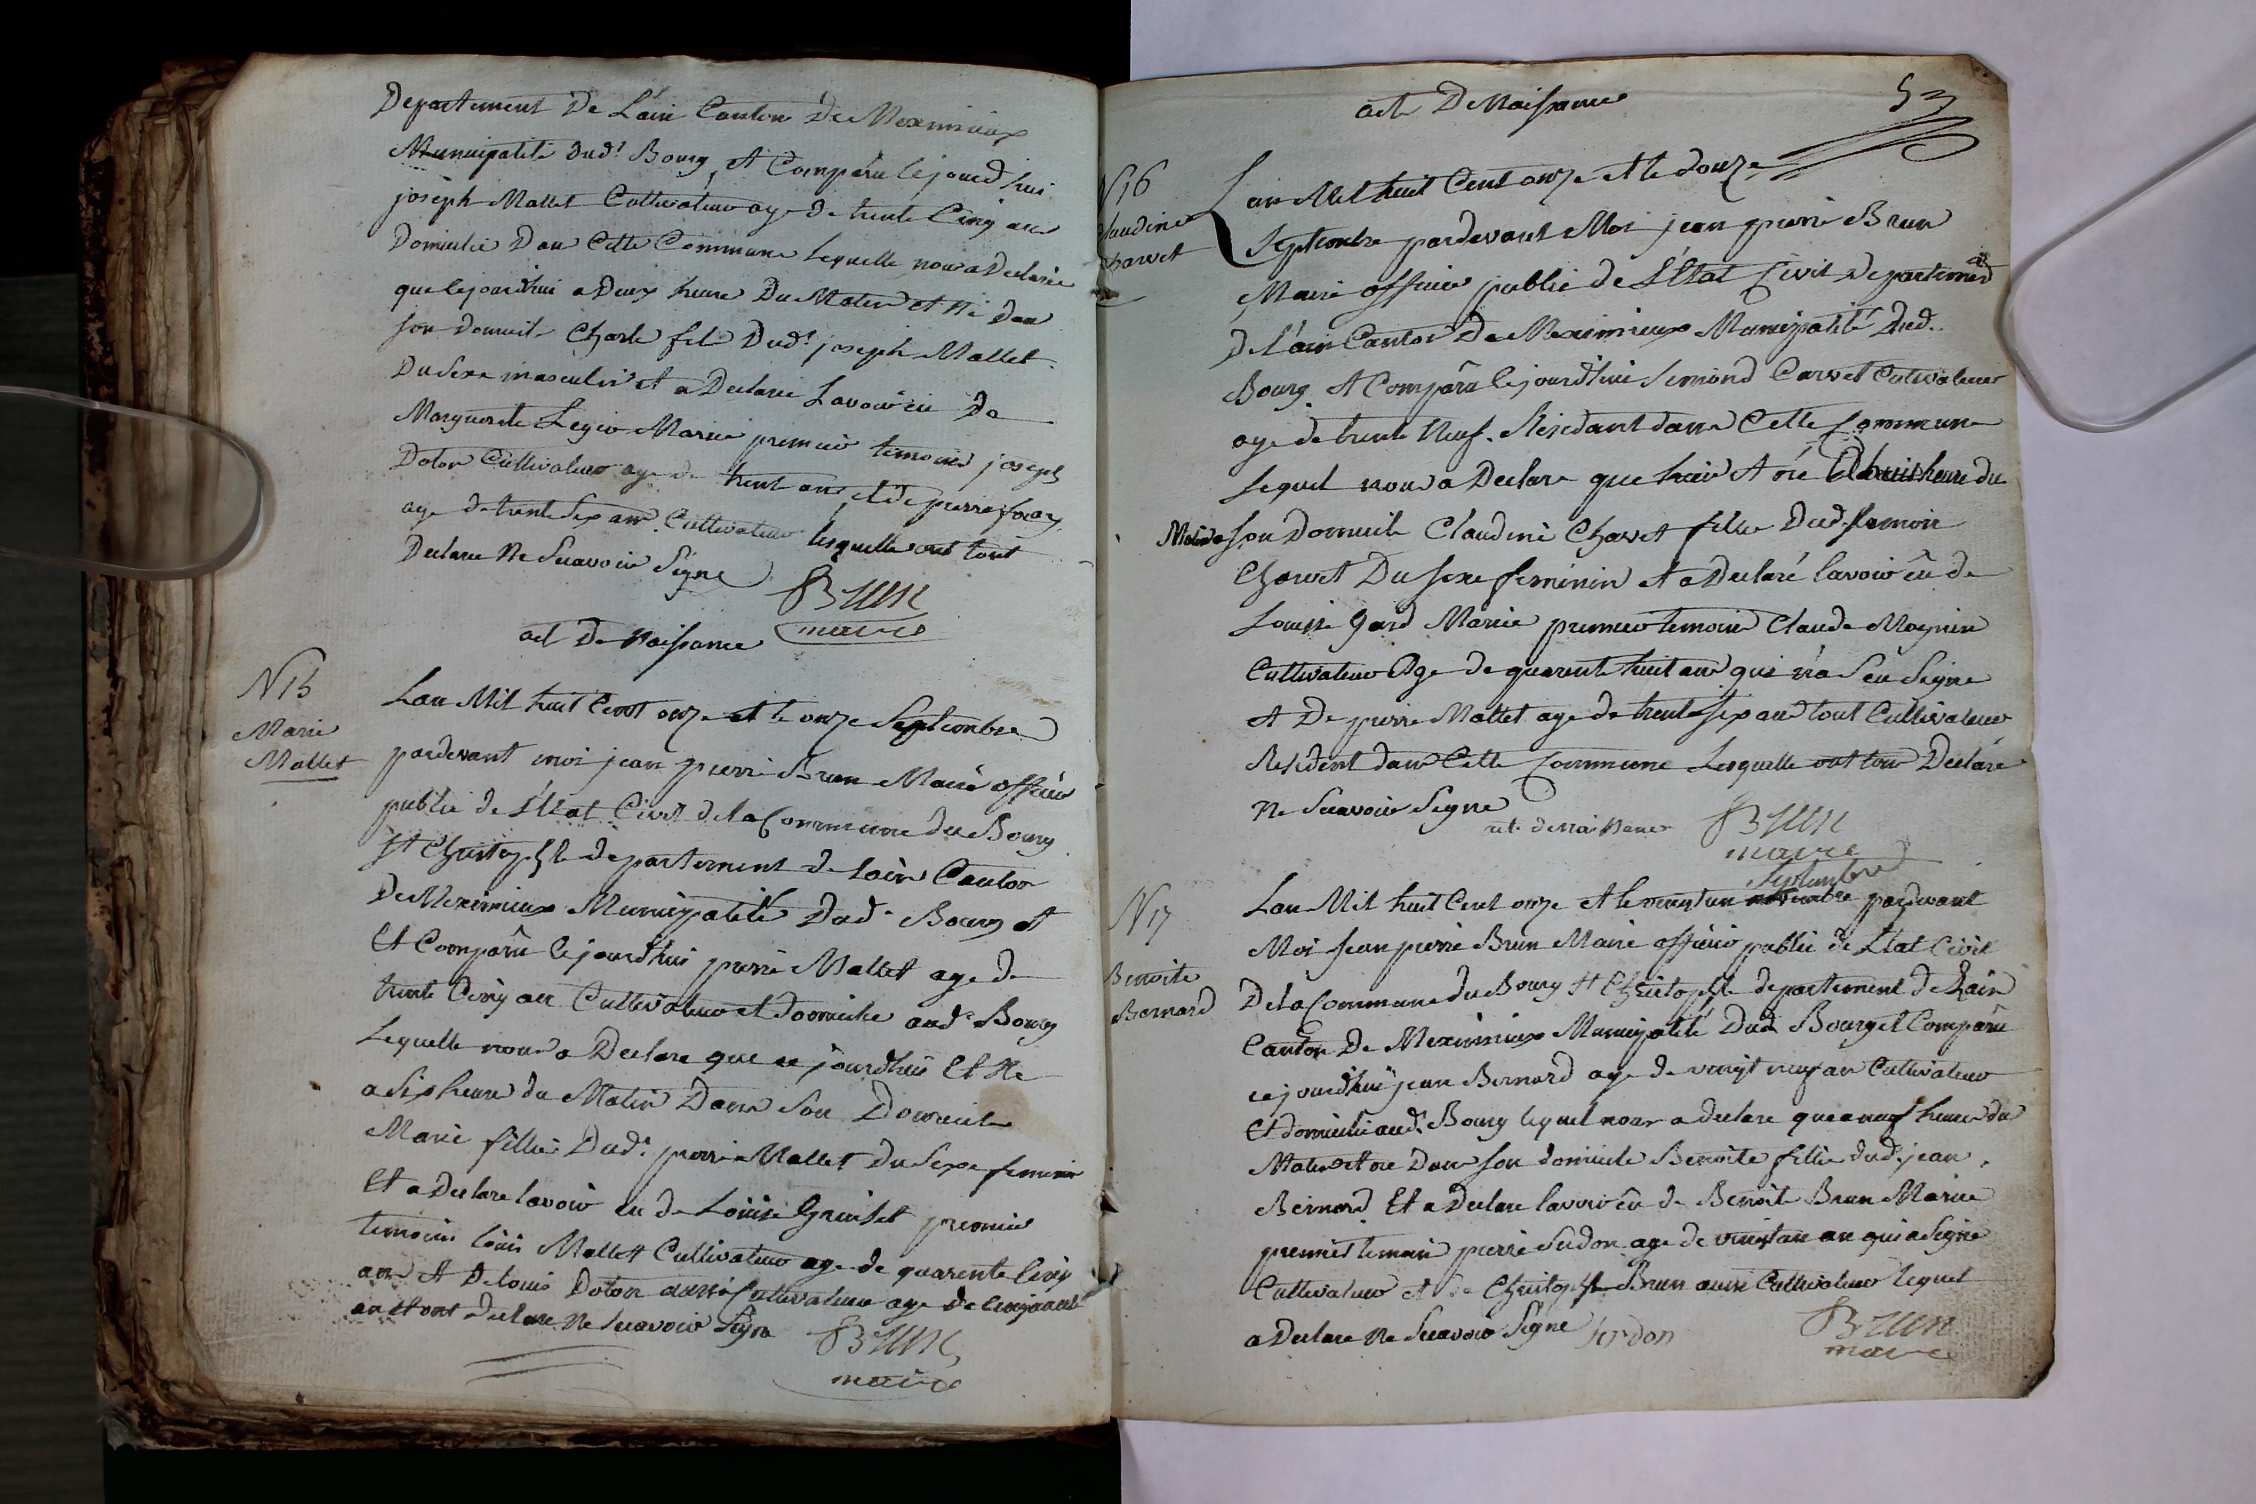 Departement De L'ain Canton De Meximieux
Municipalité dud.t Bourg, et Comparu le jourd'hui
joseph Mallet Cultivateur age de trente Cinq ans
Domicilié Dan Cette Commune Lequelle nous a Declarée
que lejourdhui a Deux heure Du Matin et né Dan
son domicile Charle fils Dud.t joseph Mallet
Du Sexe masculin et a Declaré Lavoir eu De
Marguerite Mariée premier temoins joseph
Doton Cultivateur age de trent ans et de pierre
age de trente Six ans Cultivateur lesquelle ont tout
Declare Ne Scavoir Signe
Brun
maire
act De Naissance
N 15
Marie
Mallet
Lan Mil huit Cent onze et le onze Septembre
pardevant moi jean pierre Brun Maire officier
public de L'Etat Civil de la Commune du Bourg
St Christophle departement de lain Canton
De Meximieux Municipalité Dud. Bourg et
Et Comparu le jourdhui pierre Mallet age de
trente Cinq an Cultivateur et domicilie aud. Bourg
Lequelle nous a Declare que ce jourdhui Et Ne
a Six heure du Matin Dans Son Domicile
Marie fillie Dud.t pierre Mallet du Sexe feminin
Et a Declare lavoir eu de Louise premier
temoins louis Mallet Cultivateur age de quarente Cinq
an et De louis Doton aussi Cultivateur age de cinquante
an et ont Declare Ne Scavoir Signe
Brun
maire
act De Naissance
53
N 16
Claudine
Charvet
Lan Mil huit Cent onze et le douze
Septembre pardevant Moi jean pierre Brun
Maire officier public de L'Etat Civil departement
De l'ain Canton De Meximieux Municipalité Dud.
Bourg. et Comparu le jourdhui Semond Carvet Cultivateur
age de trente Neuf. Residant dans Cette Commune
Lequel nous a Declare que hier et né heure du
Matin Son Domicile Claudine Charvet fille Dud. Semon
Charvet Du Sexe feminin et a Declaré lavoir eu de
Louise Gard Mariée premier temoins Claude Magnin
Cultivateur Age de quarente huit ans qui n'a Seu Signe
et De pierre Mallet age de trente Six ans tout Cultivateur
Resident dans Cette Commune Lesquelle ont tous Declaré
Ne Scavoir Signe
Brun
maire
act de naissance
N 17
Benoite
Bernard
Septembre
Lan Mil huit Cent onze et le vingt un novembre pardevant
Moi Jean pierre Brun Maire officier public de L'Etat Civil
De la Commune du Bourg St Christophle departement de Lain
Canton De Meximieux Municipalité Dud. Bourg et Comparu
ce jourdhui jean Bernard age de vingt neuf an Cultivateur
Et domicilié aud. Bourg lequel nous a declare que a neuf heure du
Matin et né Dans son domicile Benoite fillie dud. jean
Bernard Et a Declare lavoir eu de Benoite Brun Mariée
premier temoin pierre Serdon age de an qui a Signe
Cultivateur et de Christophle Brun aussi Cultivateur lequel
a Declare Ne Scavoir Signe
Serdon
Brun
maire